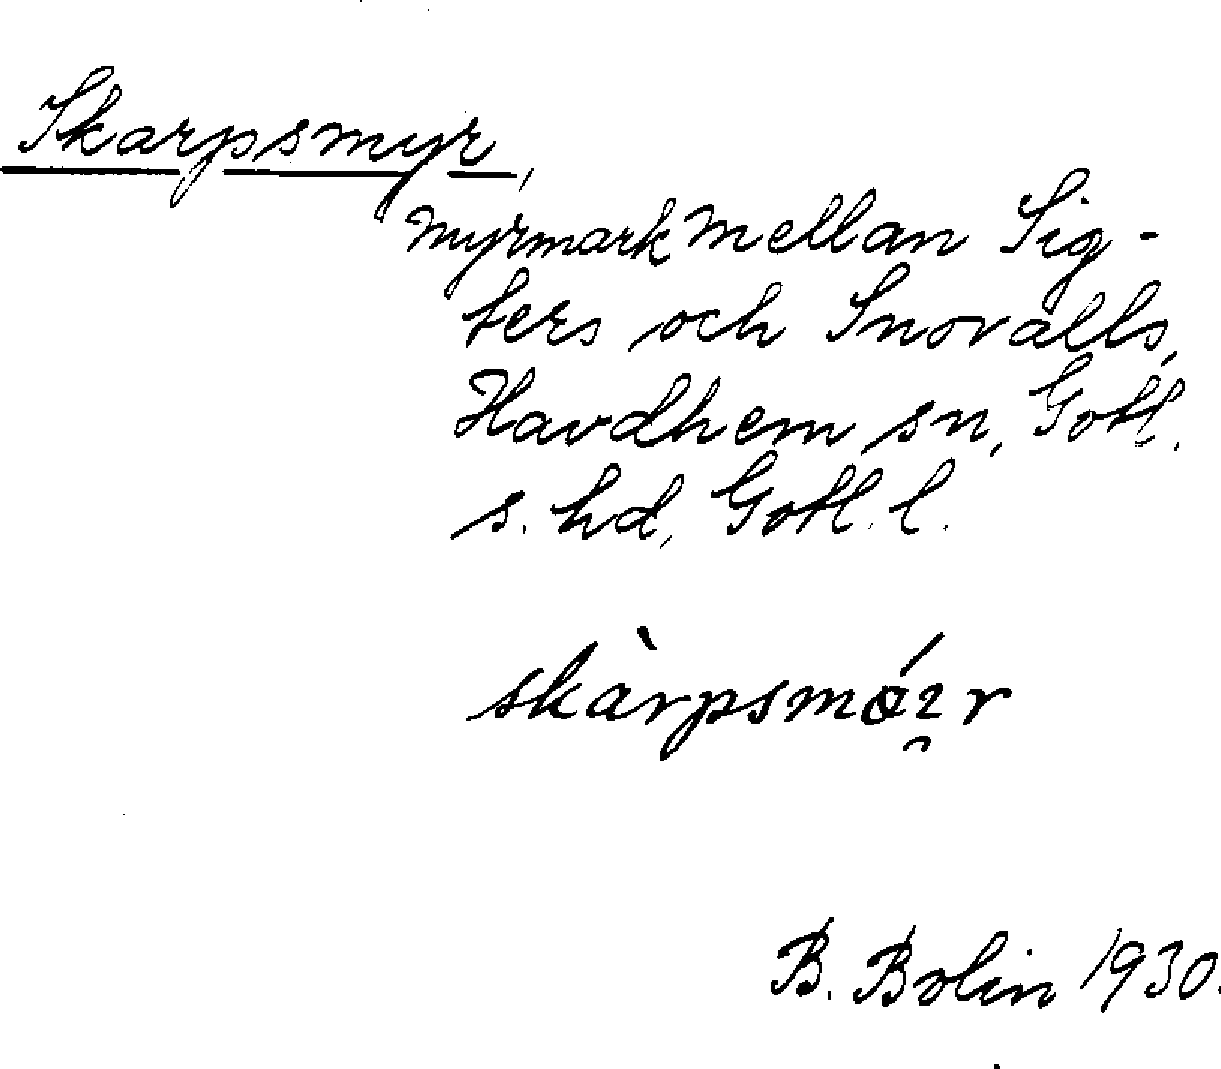 Skarpsmyr,
myrmark mellan Sig-
ters och Snovalls,
Havdhem sn, Gotl.
s. hd, Gotl. l.
B. Bolin 1930.